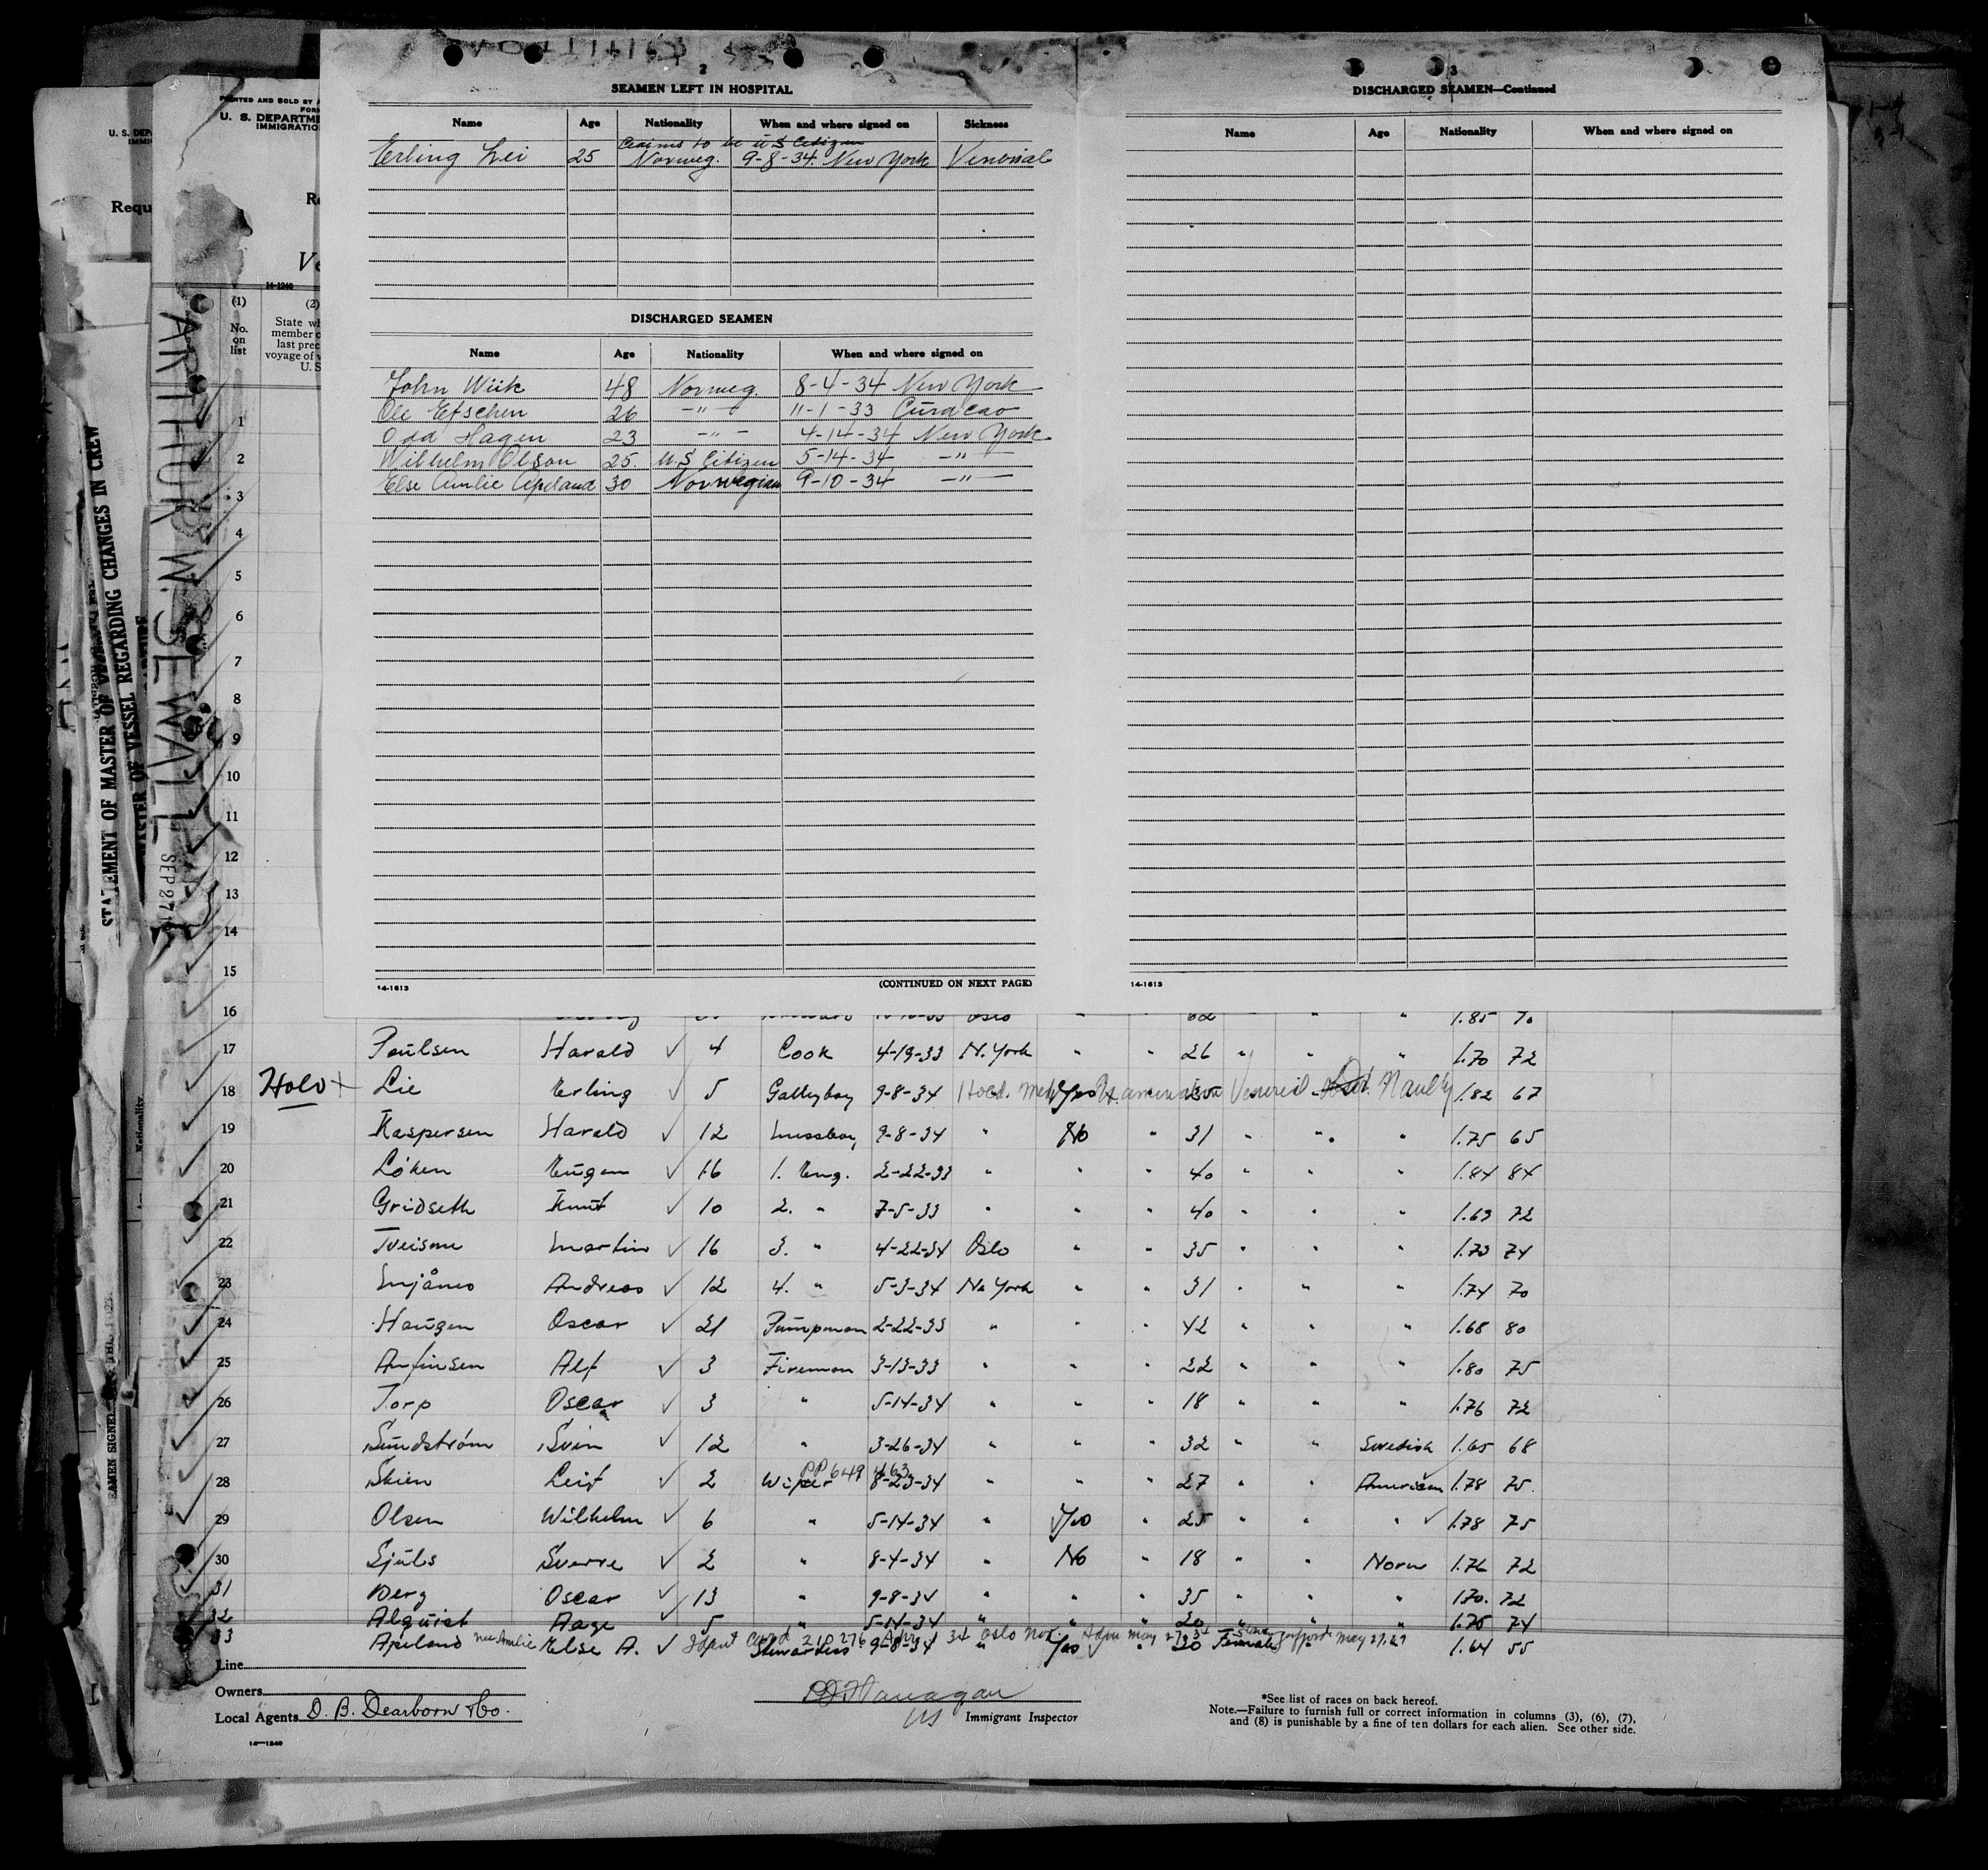 2
SEAMEN LEFT IN HOSPITAL
Name Age Nationality When and where signed on Sickness
Claims to be U S Citizen
Erling Lei 25 Norweg. 9-8-34. New York Venerial
DISCHARGED SEAMEN
Name Age Nationality When and where signed on
John Wiik 48 Norweg. 8-4-34 New York
Ole Efschen 26 -"- 11-1-33 Curacao
Odd Hagen 23 -"- 4-14-34 New York
Wilhelm Olson 25. U.S Citizen 5-14-34 -"-
Else Amlie Apeland 30 Norwegian 9-10-34 -"-
14-1613
(CONTINUED ON NEXT PAGE)
3
DISCHARGED SEAMEN—Continued
Name Age Nationality When and where signed on
14-1613
PRINTED AND SOLD BY
U. S. DEPARTME
IMMIGRATION
U. S. DEPA
Requ
Re
Ve
14-1240
(1) (2)
No. on list
State wh
member o
last prec
voyage of v
U. S
ARTHUR W. SEWALL
SEP 27
STATEMENT OF MASTER OF VESSEL REGARDING CHANGES IN CREW
Nationality
1
2
3
4
5
6
7
8
9
10
11
12
13
14
15
16 Oslo " " 62 " " 1.85 70
17 Poulsen Harald ✓ 4 Cook 4-19-33 N. York " " 26 " " " 1.70 72
18 Hold + Lie Erling ✓ 5 Galleyboy 9-8-34 Hold. Med Yes Examination Venereal 1.82 67
19 Kaspersen Harald ✓ 12 Messboy 9-8-34 " No " 31 " " " 1.75 65
20 Løken Eugen ✓ 16 1. Eng. 2-22-33 " " " 40 " " " 1.84 84
21 Gridseth Knut ✓ 10 2. " 7-5-33 " " " 40 " " " 1.69 72
22 Tveisme Martin ✓ 16 3. " 4-22-34 Oslo " " 35 " " " 1.73 74
23 Mjånes Andreas ✓ 12 4. " 5-3-34 Ne York " " 31 " " " 1.74 70
24 Haugen Oscar ✓ 21 Pumpman 2-22-33 " " " 42 " " " 1.68 80
25 Anfinsen Alf ✓ 3 Fireman 3-13-33 " " " 22 " " " 1.80 75
26 Torp Oscar ✓ 3 " 5-14-34 " " " 18 " " " 1.76 72
27 Sundstrøm Svin ✓ 12 " 3-26-34 " " " 32 " " Swedish 1.65 68
PP 649 463
28 Skien Leif ✓ 2 Wiper 8-23-34 " " " 27 " " American 1.78 75.
29 Olsen Wilhelm ✓ 6 " 5-14-34 " Yes " 25 " " " ✓ 1.78 75
30 Sjuls Sverre ✓ 2 " 8-4-34 " No " 18 " " Norw 1.76 72
31 Berg Oscar ✓ 13 " 9-8-34 " " " 35 " " " 1.70. 72
32 Alquist Aage 5 " 5-14-34 " " " 20 " " " 1.75 74
33 Apeland nee Amlie Else A. ✓ Card 210276 Stewardess 9-8-34 Oslo Nor. " Yes " 30 Female May 27.29 1.64 55
Line
Owners
Local Agents D. B. Dearborn & Co.
14—1240
US Immigrant Inspector
*See list of races on back hereof.
Note.—Failure to furnish full or correct information in columns (3), (6), (7),
and (8) is punishable by a fine of ten dollars for each alien. See other side.